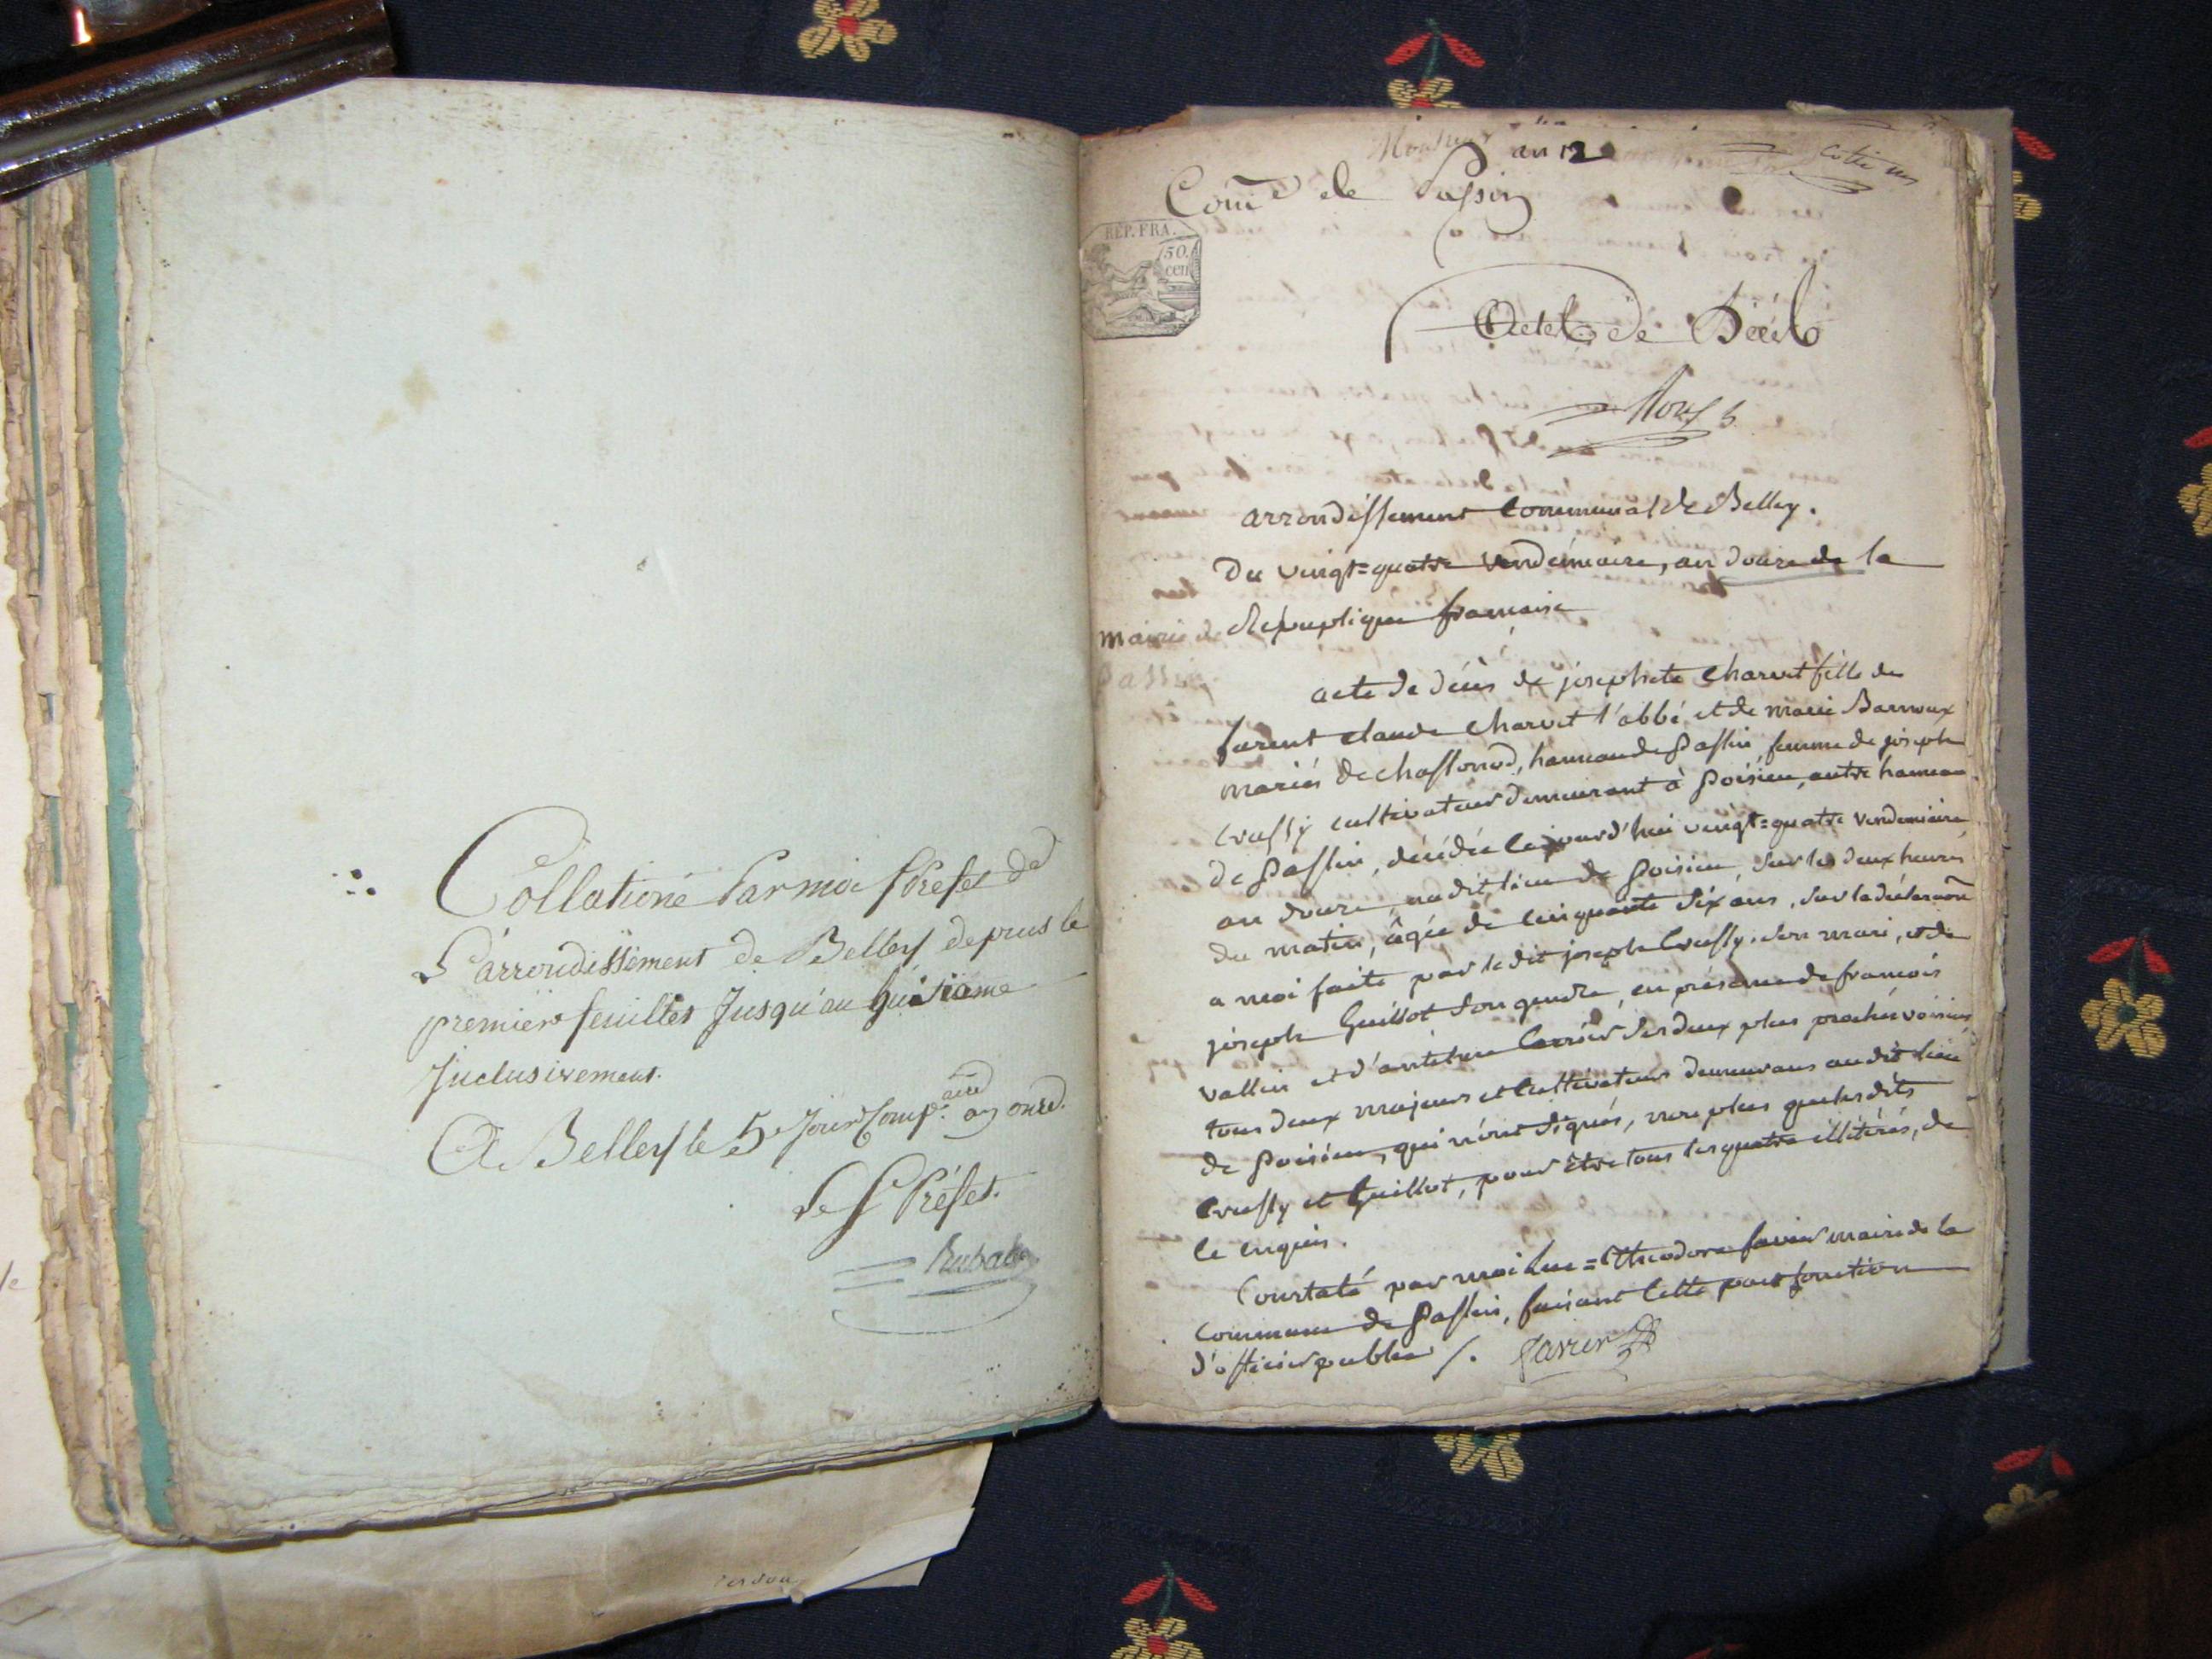 Collationé Par moi S Prefet de
L'arrondissement de Belley depuis le
premier feuillet Jusqu'au huitiême
Inclusivement.
A Belley le 5e Jour Comp.aire an onze.
Le S Préfet.
an 12
Com̃e de Passin
REP. FRA.
50.
cen
Actes de Décés
arrondissement Communal de Belley.
Du vingt=quatre vendémiaire, an douze de la
mairie de République francaise
Passin
acte de décès de josephte Charvet fille de
furent claude Charvet l'abbé et de marie
mariés de chassonod, hameau de Passin, femme de joseph
Crussy cultivateur demeurant à Poisieu, autre hameau
de Passin, décédée cejourd'hui vingt=quatre vendemiaire
an douze, audit lieu de Poisieu, sur les deux heures
du matin, âgée de cinquante six ans, sur la déclaraõn
a moi faite par le dit joseph Crussy son mari, et de
joseph Guillot son gendre, en présence de francois
vallin et d'antelme Carrier ses deux plus proches voisins
tous deux majeurs et cultivateurs demeurans audit lieu
de Poisieu, qui n'ont signés, non plus que lesdits
Crussy et Guillot, pour être tous les quatre illitérés, de
ce enquis.
Constaté par moi Luc=Théodore favier maire de la
commune de Passin, faisant cette part fonction
d'officier public /. favier